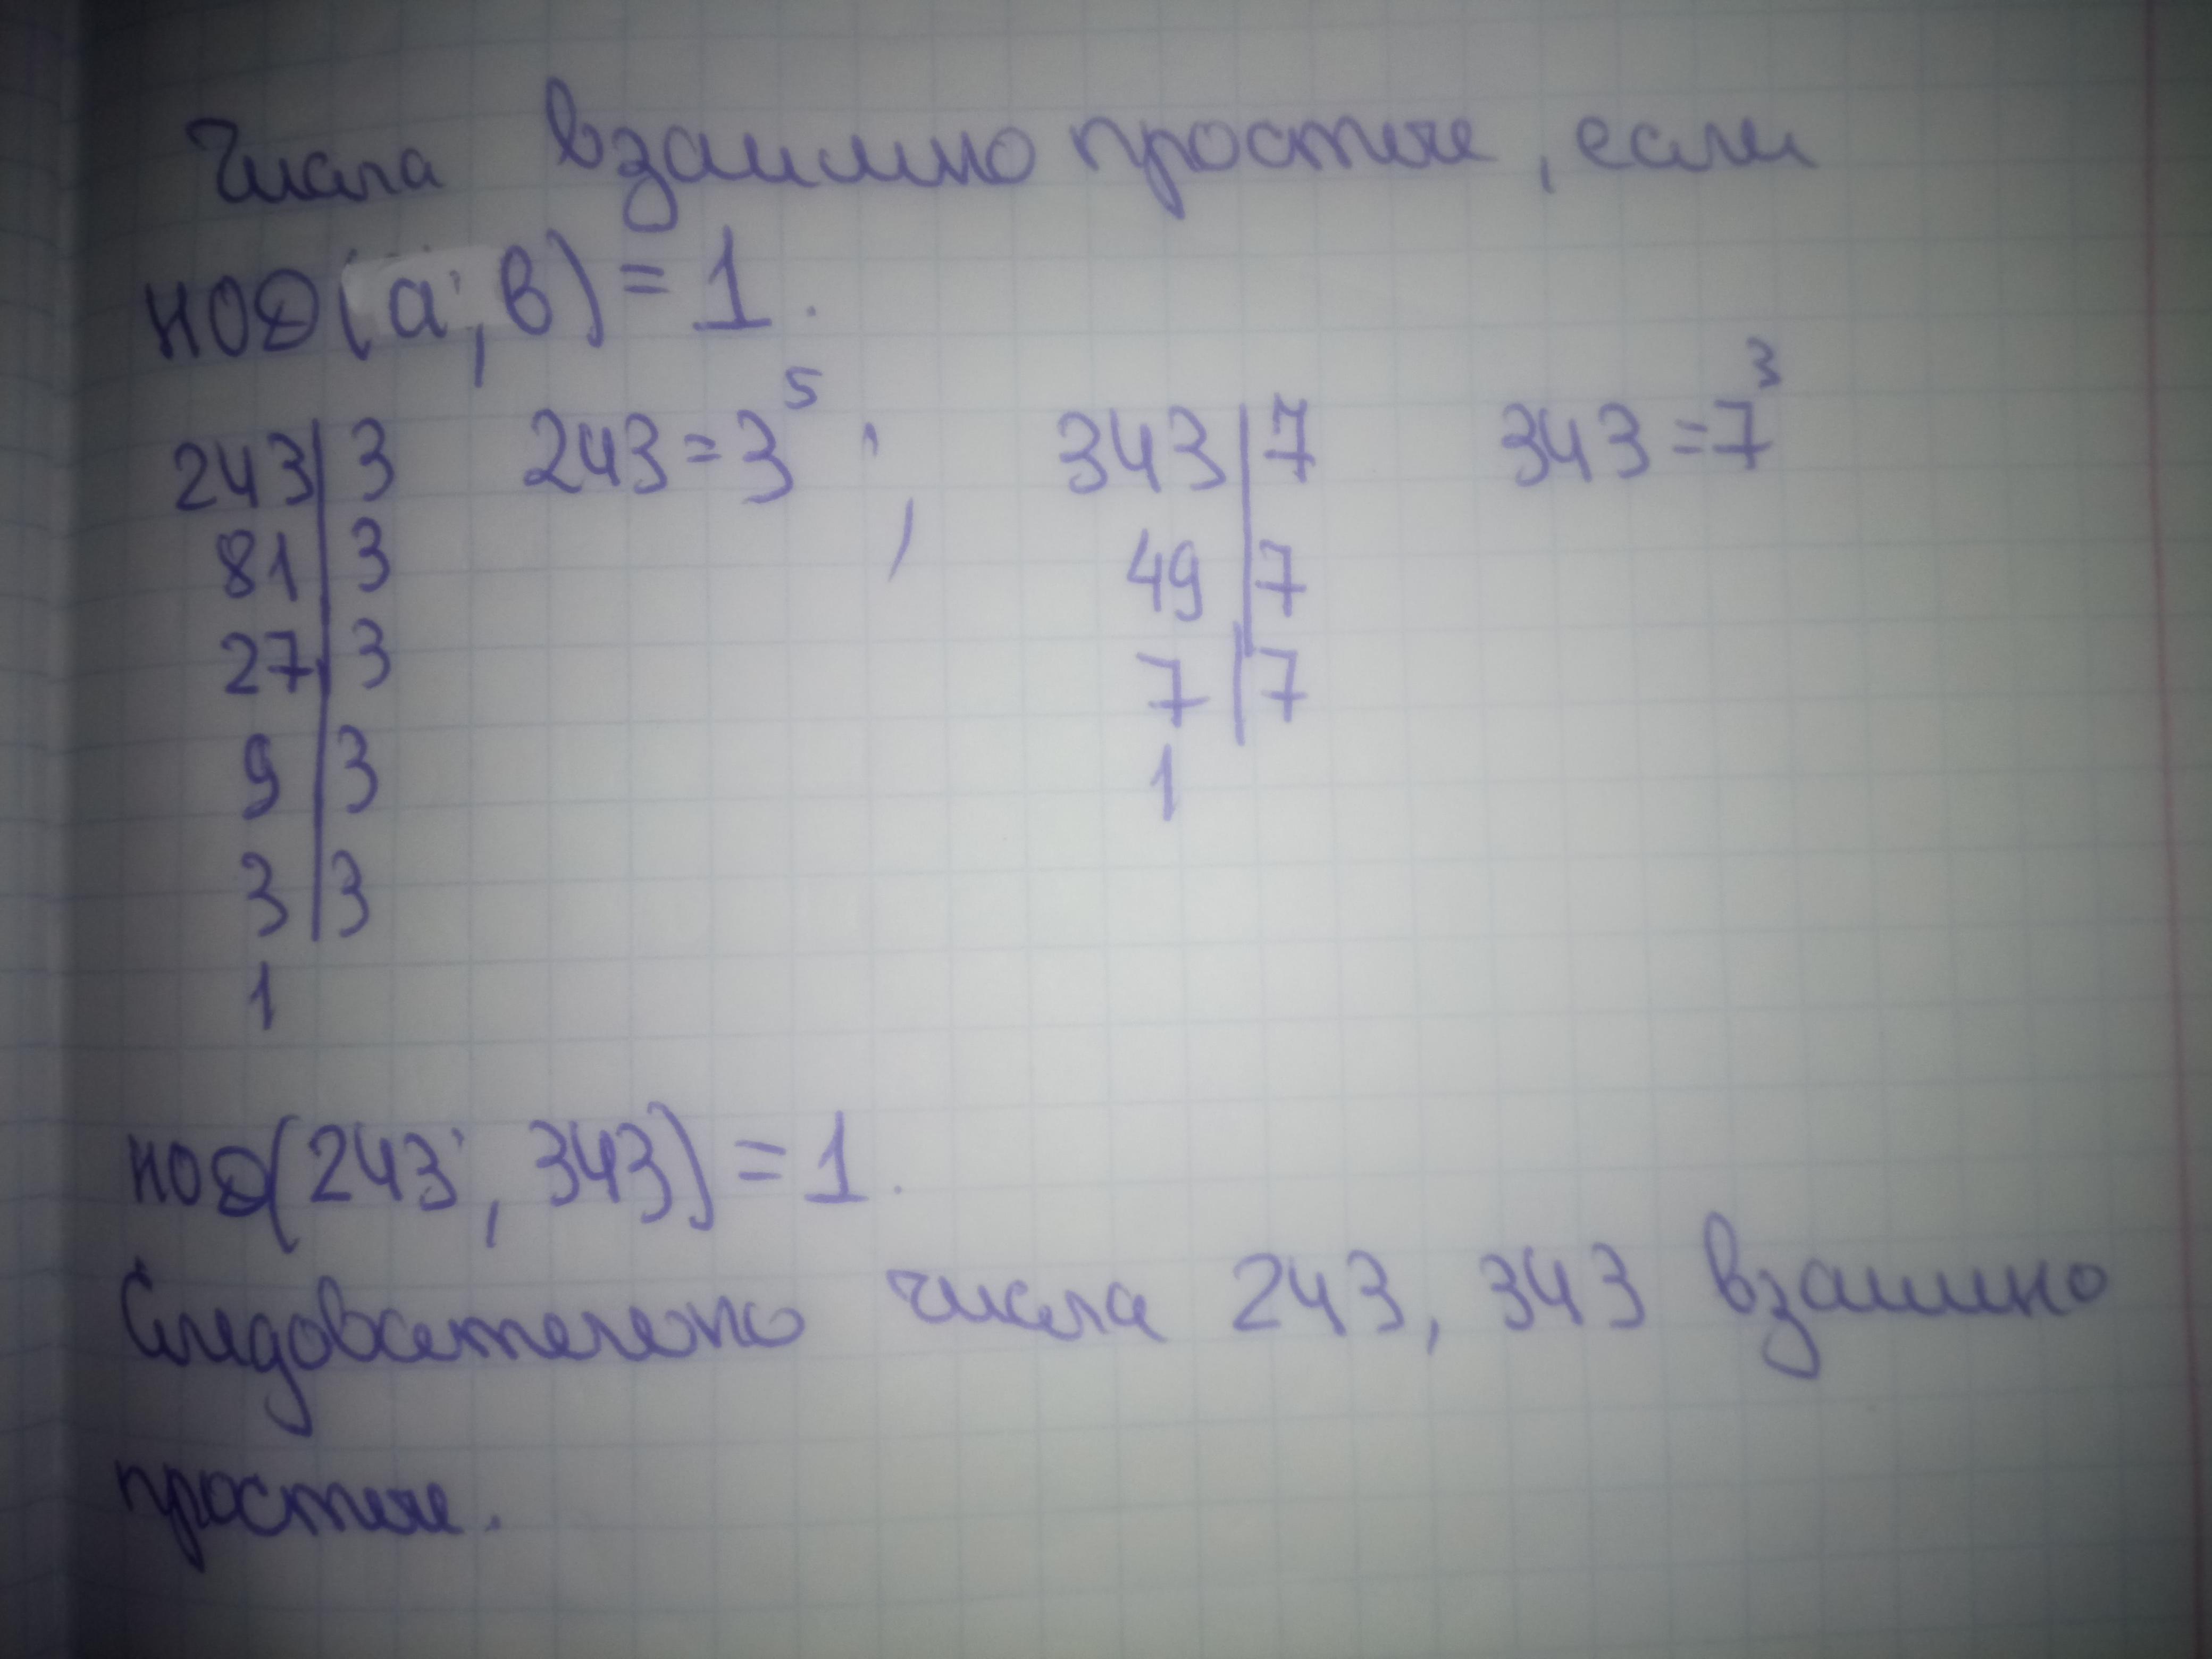 Числа взаимно простые, если
НОД(а; в) = 1.
243|3 243=3⁵; 343|7 343=7³
81|3 49|7
27|3 7|7
9|3 1
3|3
1
НОД(243; 343) = 1.
Следователено числа 243, 343 взаимно
простые.